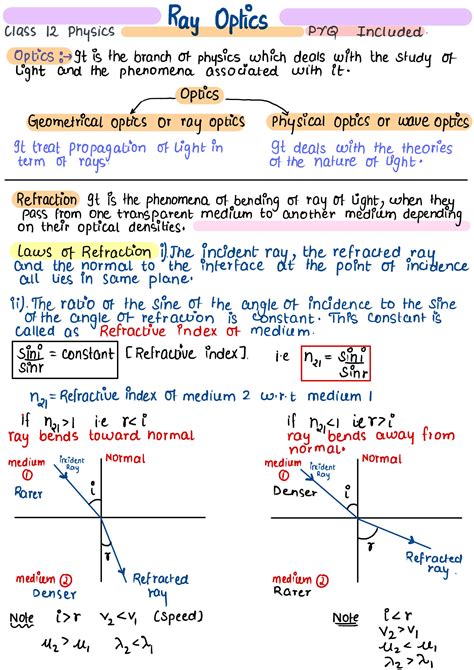 Ray Optics
Class 12 Physics
PYQ Included.
Optics:→ It is the branch of physics which deals with the study of
light and the phenomena associated with it.
Optics
Geometrical optics or ray optics
Physical optics or wave optics
It treat propagation of light in
term of rays
It deals with the theories
of the nature of light.
Refraction It is the phenomena of bending of ray of light, when they
pass from one transparent medium to another medium depending
on their optical densities.
Laws of Refraction i).The incident ray, the refracted ray
and the normal to the interface at the point of incidence
all lies in same plane.
ii). The ratio of the sine of the angle of incidence to the sine
of the angle of refraction is constant. This constant is
called as Refractive index of medium.
sini/sinr = constant [Refractive index]. i.e n₂₁ = sini/sinr
n₂₁ = Refractive index of medium 2 w.r.t medium 1
if n₂₁>1 i.e r<i
ray bends toward normal
if n₂₁<1 ie r>i
ray bends away from
normal.
medium ①
Rarer
incident Ray
Normal
i
r
medium ②
Denser
Refracted ray
medium ①
Denser
incident Ray
Normal
i
r
medium ②
Rarer
Refracted ray
Note i>r v₂<v₁ (Speed)
μ₂>μ₁ λ₂<λ₁
Note i<r
v₂>v₁
μ₂<μ₁
λ₂>λ₁